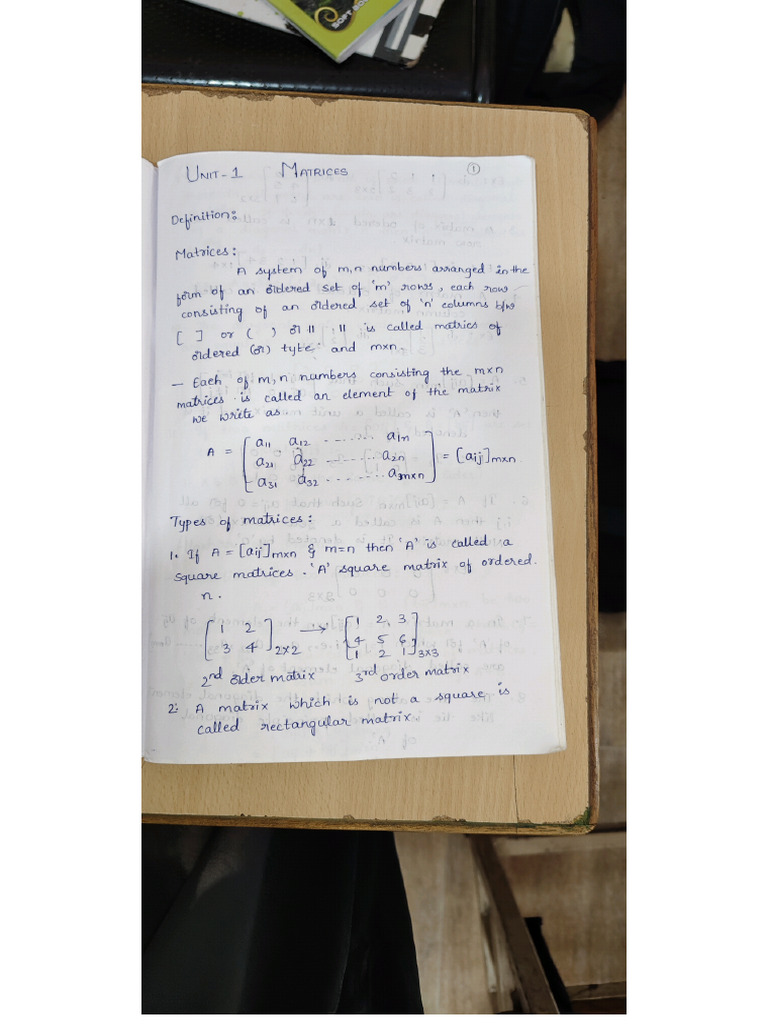 SOFT BO
UNIT-1 MATRICES 1
Definition:
Matrices:
A system of m,n numbers arranged in the
form of an ordered set of 'm' rows, each row
consisting of an ordered set of 'n' columns b/w
[ ] or ( ) or || || is called matrics of
ordered (or) tyte and mxn.
- Each of m,n numbers consisting the mxn
matrices is called an element of the matrix
we write as
A = [a11 a12 ....... a1n
a21 a22 ....... a2n
a31 a32 ....... a3mxn] = [aij]mxn
Types of matrices:
1. If A = [aij]mxn & m=n then 'A' is called a
square matrices. 'A' square matrix of ordered.
n.
[1 2 → [1 2 3
3 4]2x2 4 5 6
1 2 1]3x3
2nd order matrix 3rd order matrix
2. A matrix which is not a square is
called rectangular matrix